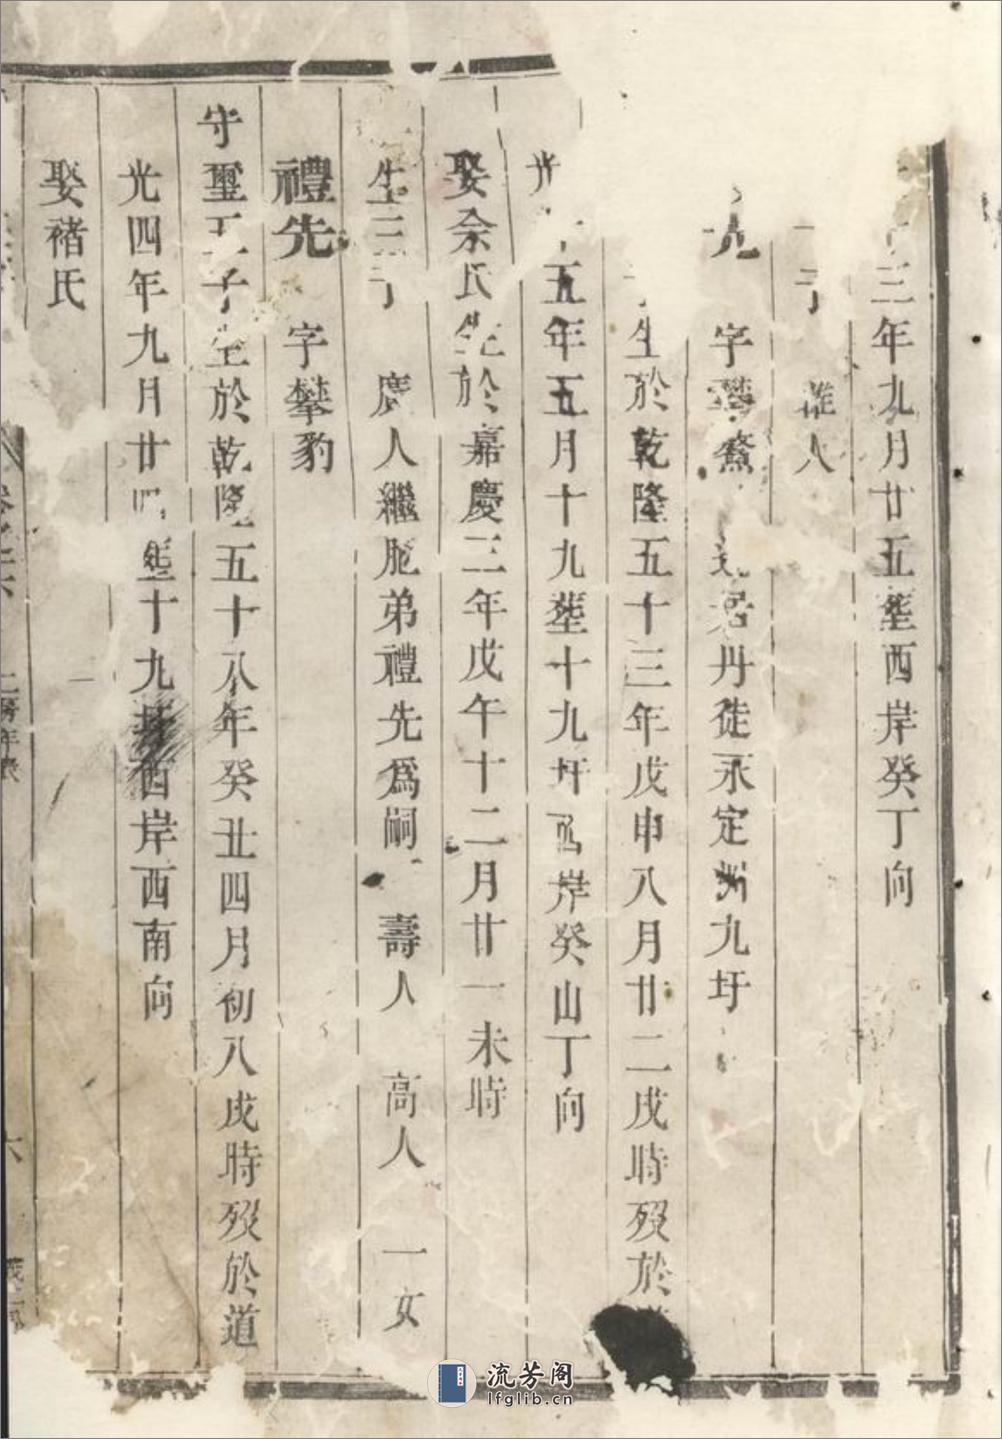 三年九月廿五塟西岸癸丁向
子 人
字 居丹徒永定洲九圩
生於乾隆五十三年戊申八月廿二戌時歿於
光 五年五月十九塟十九圩西岸癸山丁向
娶余氏生於嘉慶三年戊午十二月廿一未時
生三子 廣人繼胞弟禮先爲嗣 壽人 高人 一女
禮先 字攀豹
守璽五子生於乾隆五十八年癸丑四月初八戌時歿於道
光四年九月廿四塟十九圩西岸西南向
娶褚氏
六
流芳阁
lfglib.cn